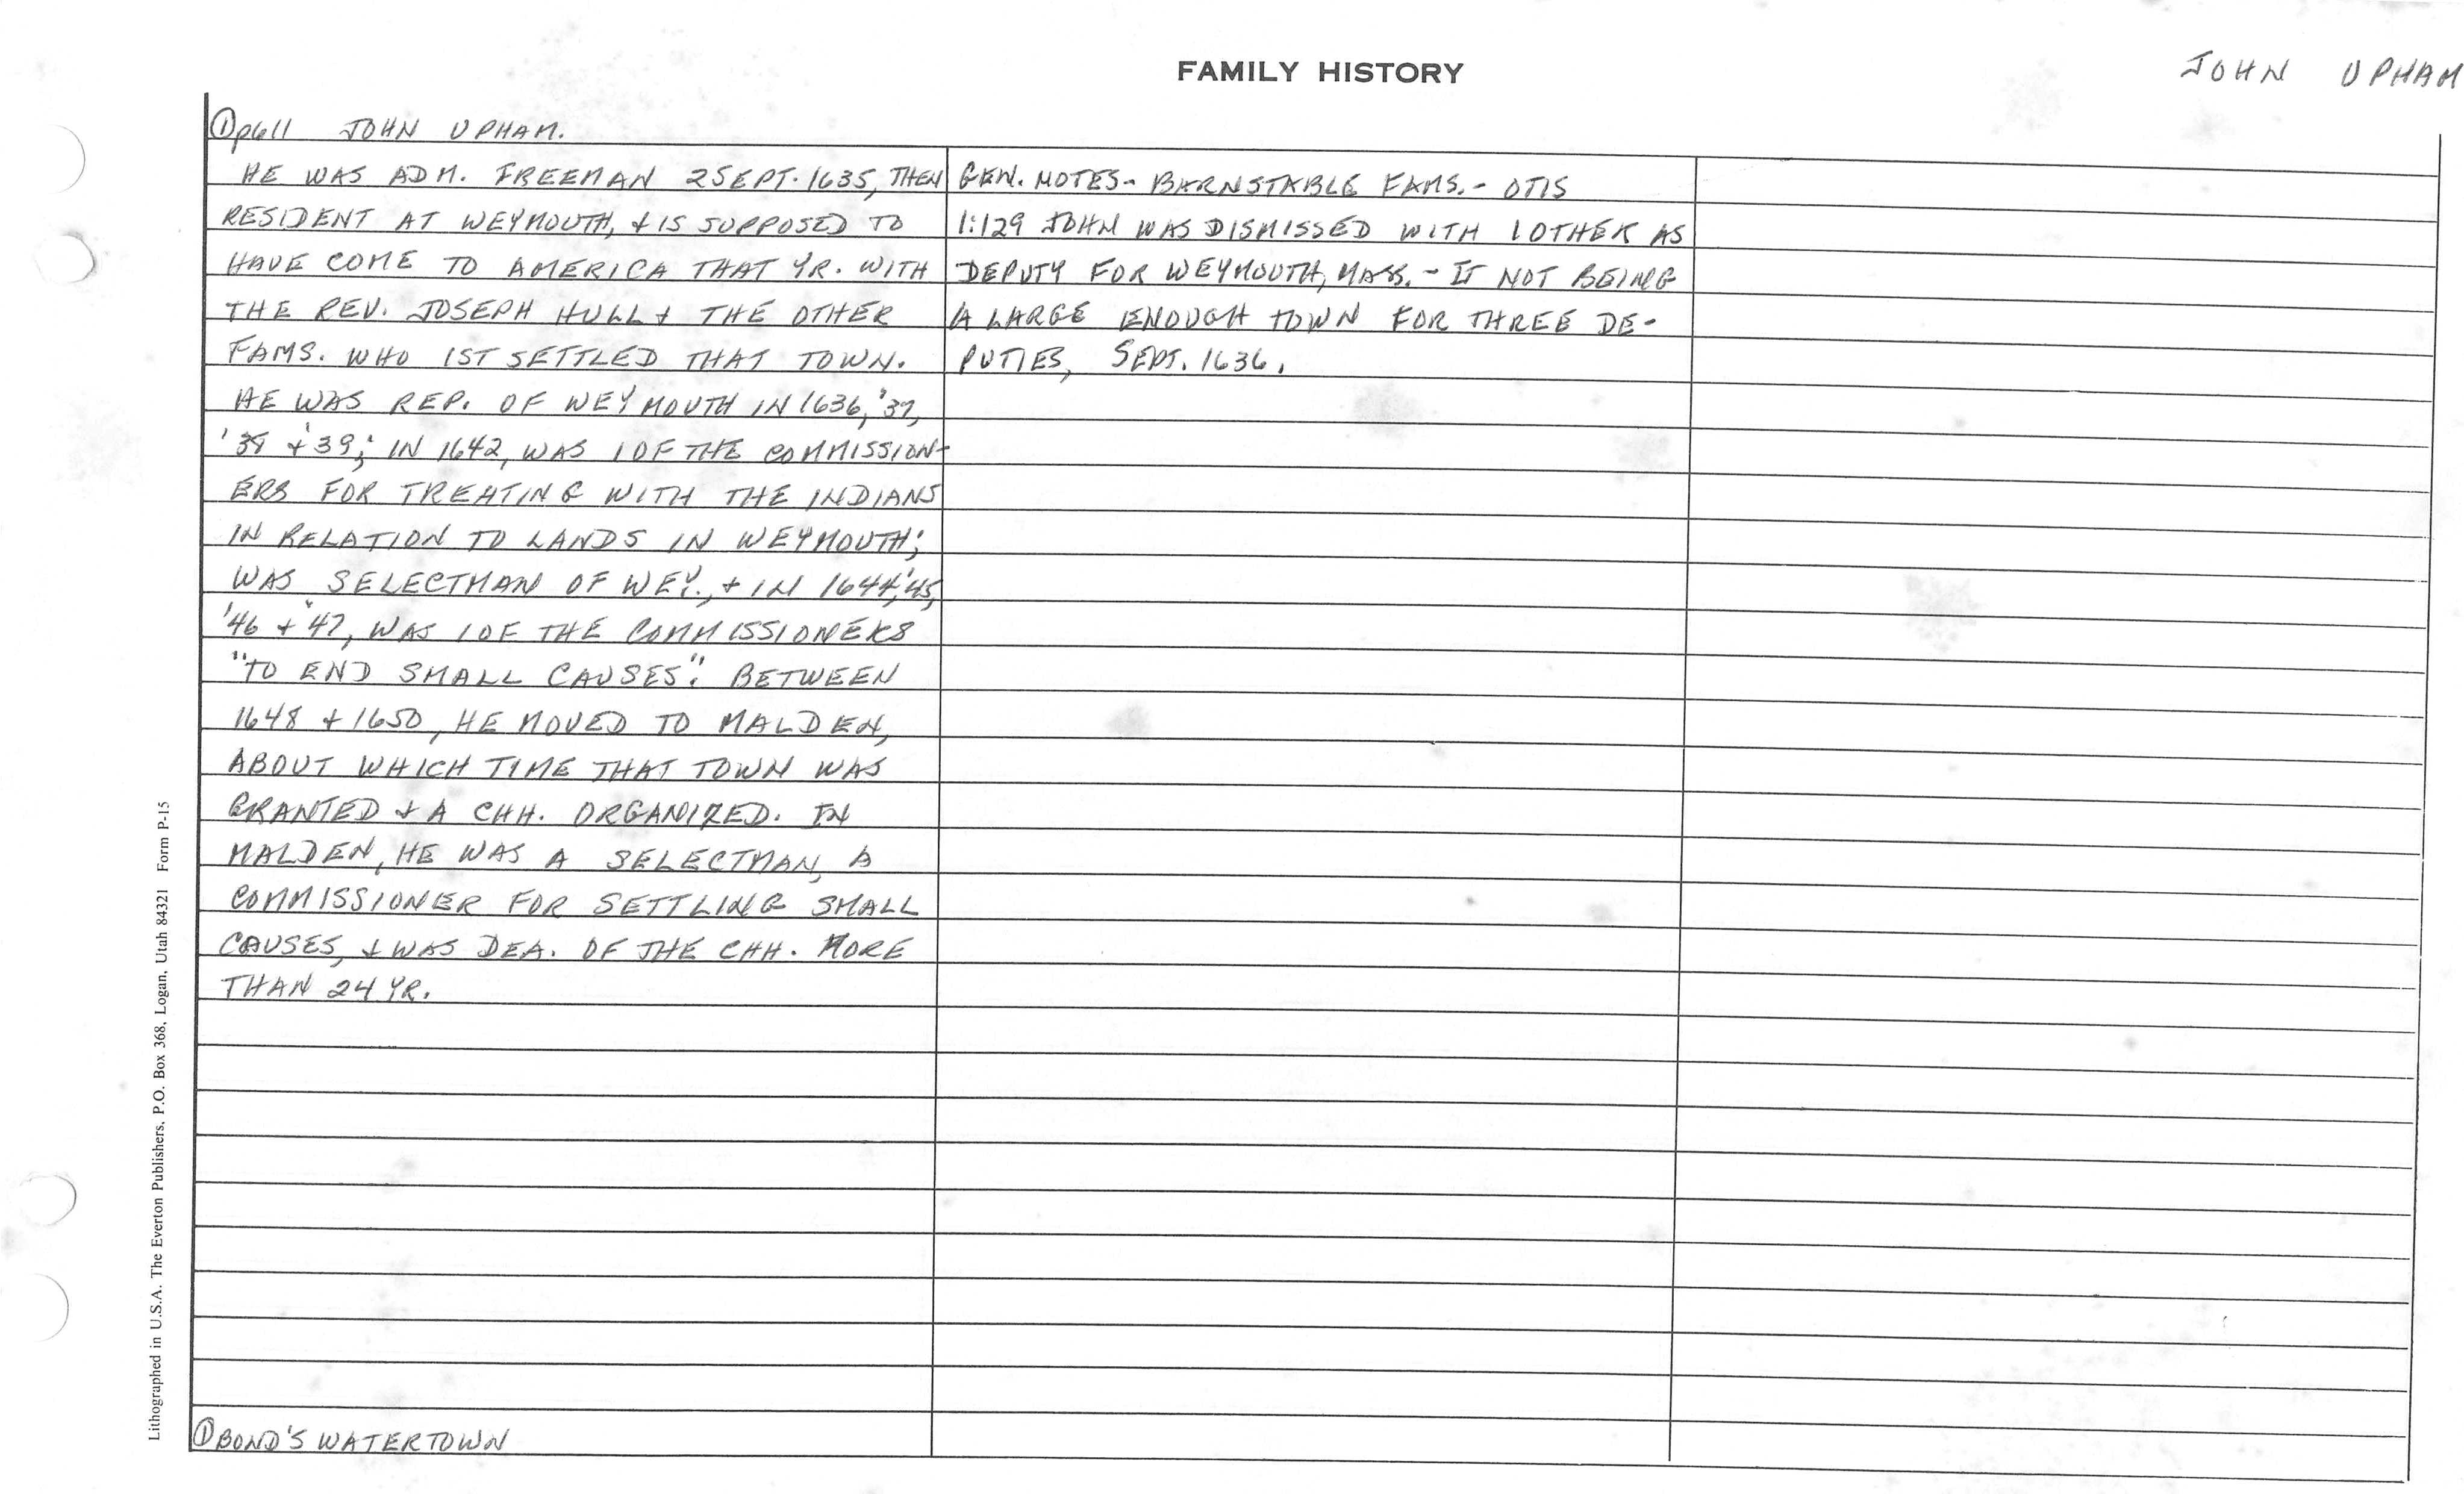 FAMILY HISTORY
JOHN UPHAM
① p611 JOHN UPHAM.
HE WAS ADM. FREEMAN 2 SEPT. 1635, THEN
RESIDENT AT WEYMOUTH, & IS SUPPOSED TO
HAVE COME TO AMERICA THAT YR. WITH
THE REV. JOSEPH HULL & THE OTHER
FAMS. WHO 1ST SETTLED THAT TOWN.
HE WAS REP. OF WEYMOUTH IN 1636, '37,
'38 & '39; IN 1642, WAS 1 OF THE COMMISSION-
ERS FOR TREATING WITH THE INDIANS
IN RELATION TO LANDS IN WEYMOUTH;
WAS SELECTMAN OF WEY., & IN 1644, '45,
'46 & '47, WAS 1 OF THE COMMISSIONERS
"TO END SMALL CAUSES". BETWEEN
1648 & 1650, HE MOVED TO MALDEN,
ABOUT WHICH TIME THAT TOWN WAS
GRANTED & A CHH. ORGANIZED. IN
MALDEN, HE WAS A SELECTMAN, A
COMMISSIONER FOR SETTLING SMALL
CAUSES, & WAS DEA. OF THE CHH. MORE
THAN 24 YR.
① BOND'S WATERTOWN
GEN. NOTES - BARNSTABLE FAMS. - OTIS
1:129 JOHN WAS DISMISSED WITH 1 OTHER AS
DEPUTY FOR WEYMOUTH, MASS. - IT NOT BEING
A LARGE ENOUGH TOWN FOR THREE DE-
PUTIES, SEPT. 1636.
Lithographed in U.S.A. The Everton Publishers, P.O. Box 368, Logan, Utah 84321 Form P-15